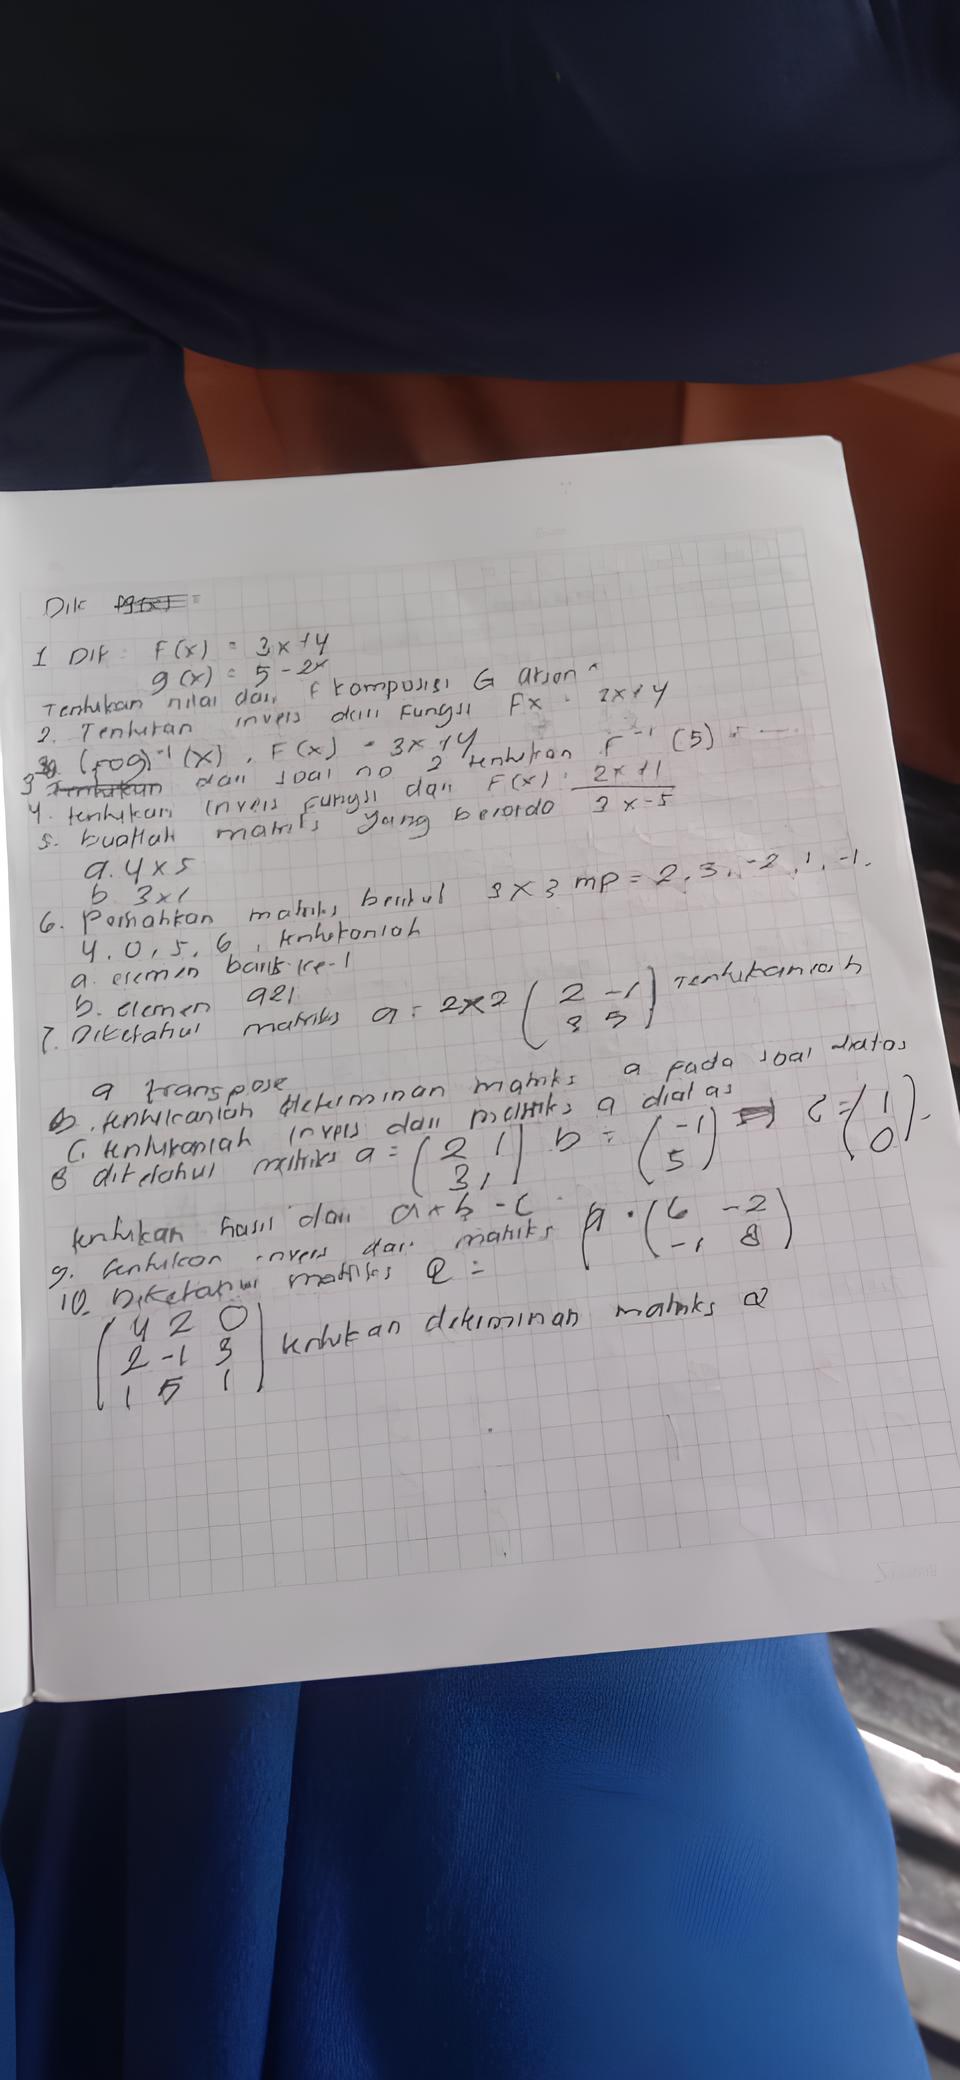 Dik
1 Dik : F(x) = 3x+4
g(x) = 5-2x
Tentukan nilai dari F komposisi G
2. Tentukan invers dari Fungsi Fx = 2x+4
(Fog)⁻¹(x), F(x) = 3x+4
3 dari soal no 2 tentukan F⁻¹ (5) = ....
4. tentukan invers Fungsi dari F(x) = 2x+1 / 3x-5
5. buatlah matriks yang berordo
a. 4x5
b. 3x1
6. matriks 3x3 = 2, 3, -2, 1, -1,
4, 0, 5, 6, tentukanlah
a. elemen baris ke-1
b. elemen a21
7. Diketahui matriks a = 2x2 (2 -1
3 5) Tentukanlah
a transpose
b. tentukanlah determinan matriks a pada soal diatas
C. tentukanlah invers dari matriks a diatas
8 diketahui matriks a = (2 1
3 1) b = (-1
5) C = (1
0).
tentukan hasil dari a×b-c
9. tentukan invers dari matriks A = (6 -2
-1 8)
10. Diketahui matriks Q =
(4 2 0
2 -1 3
1 5 1) tentukan determinan matriks Q